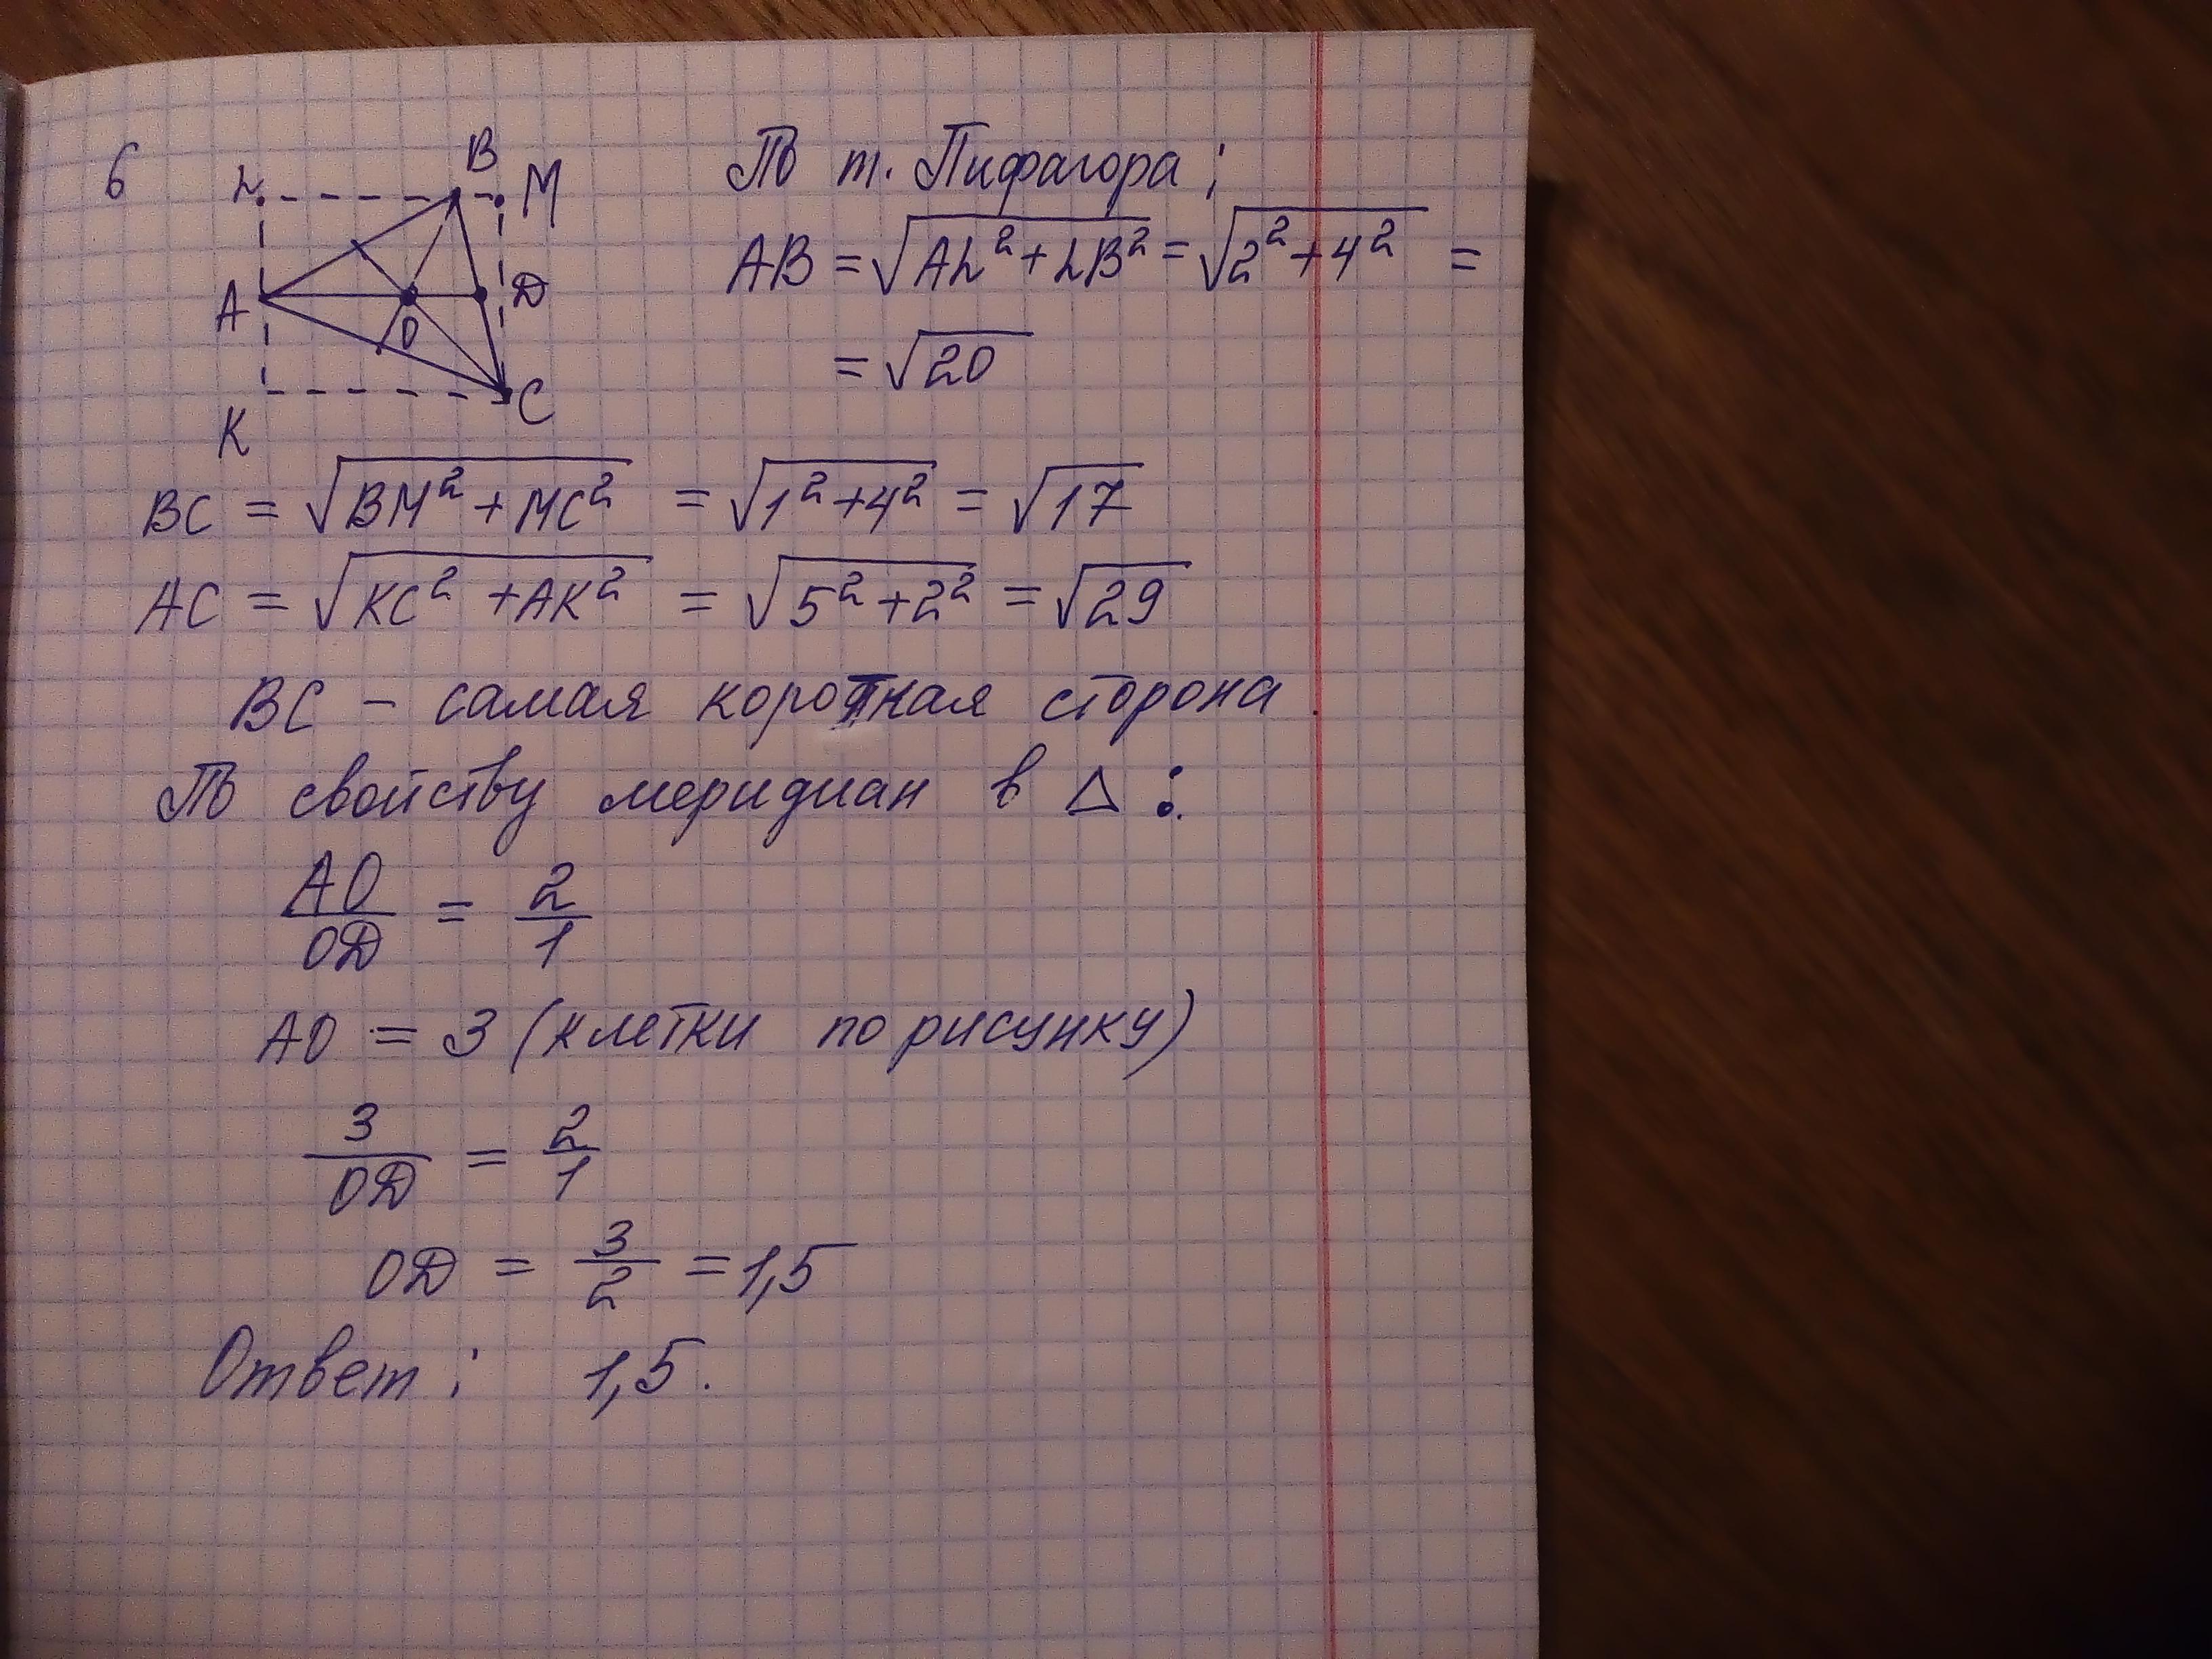 6
L B M
A O D
K C
По т. Пифагора:
AB = √(AL² + LB²) = √(2² + 4²) =
= √20
BC = √(BM² + MC²) = √(1² + 4²) = √17
AC = √(KC² + AK²) = √(5² + 2²) = √29
BC – самая короткая сторона.
По свойству меридиан в △:
AO/OD = 2/1
AO = 3 (клетки по рисунку)
3/OD = 2/1
OD = 3/2 = 1,5
Ответ: 1,5.